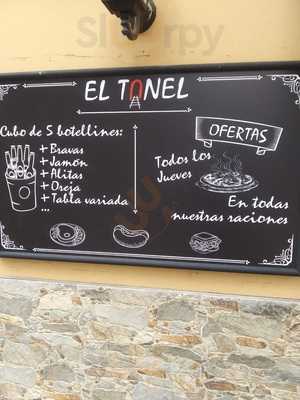 EL TUNEL
Cubo de 5 botellines:
+ Bravas
+ Jamón
+ Alitas
+ Oreja
+ Tabla variada
...
OFERTAS
Todos los
Jueves
En todas
nuestras raciones
Sirpy